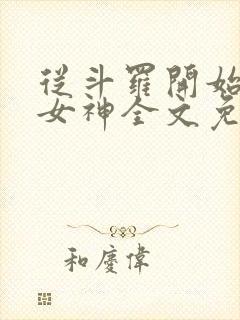 從斗羅開始
女神全文免
和慶偉